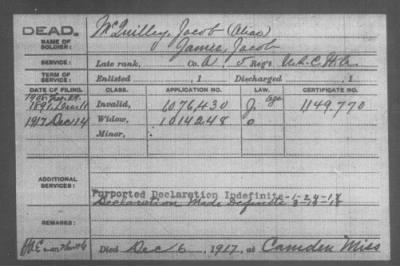 DEAD.
NAME OF SOLDIER:
McQuilley, Jacob (Alias)
James, Jacob
SERVICE:
Late rank, Co. A, 5 Reg't U.S.C.H.A.
TERM OF SERVICE:
Enlisted , 1 Discharged , 1
DATE OF FILING. CLASS. APPLICATION NO. LAW. CERTIFICATE NO.
1891 Dec 11 Invalid, 1076,430 J. age 1149,770
1917 Dec 14 Widow, 1014248 0
Minor,
ADDITIONAL SERVICES:
Purported Declaration Indefinite
Declaration Made Definite
REMARKS:
Died Dec 6, 1917, at Camden Miss